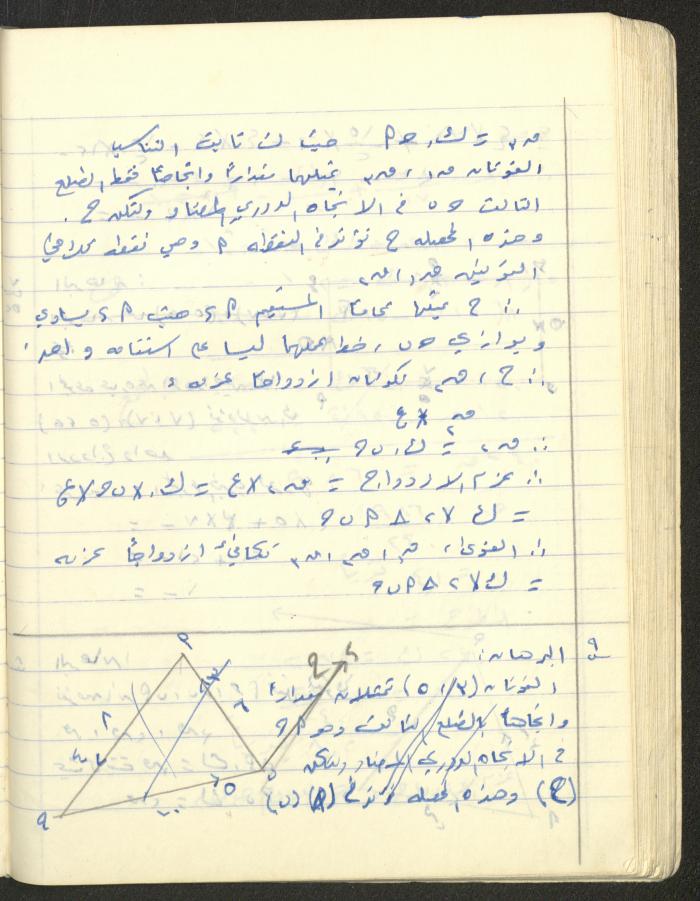 ق٣ = ك، حـ م حيث ك ثابت التناسب
القوتان ق١، ق٣ تمثلهما مقداراً واتجاهاً فقط الضلع
الثالث حـ ب فى الاتجاه الدوري المضاد ولتكن ح.
وهذه المحصلة ح تؤثر فى النقطة م وهي نقطة تلاقي
القوتين ق١، ق٣
∴ ح يمثلها تماماً المستقيم م ء حيث م ء يساوي
ويوازي حـ ب، خط عملهما ليسا على استقامة واحدة
∴ ح، ق٢ تكونان ازدواجاً عزمه =
ق٢ × ع
∴ ق٢ = ك، ب حـ
∴ عزم الازدواج = ق٢ × ع = ك، × ب حـ × ع
= ك × ٢ Δ م ب حـ
∴ القوى، ق١، ق٢، ق٣ تكافئ ازدواجاً عزمه
= ك × ٢ Δ م ب حـ
البرهان:
القوتان (٣، ٥) تمثلان مقداراً
واتجاهاً بالضلع الثالث وهو م حـ
فى الاتجاه الدوري المضاد ولتكن
(ح) وهذه المحصلة تؤثر فى (ب)